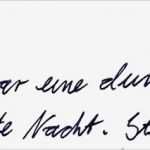 ar eine dun
te Nacht. St